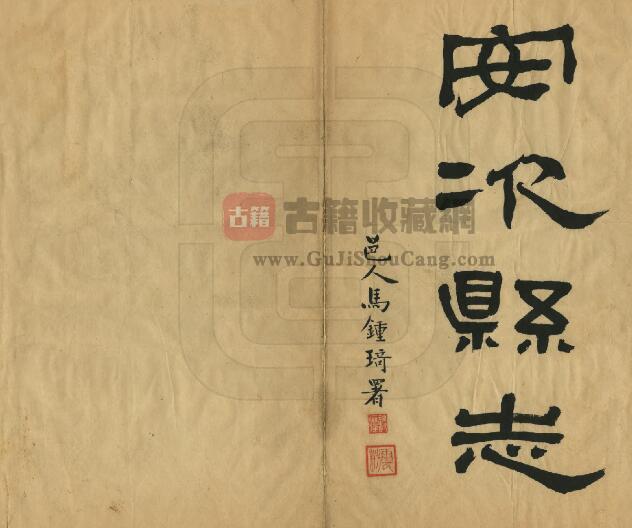 安次縣志
邑人馬鍾琦署
古籍 古籍收藏網
www.GuJiShouCang.com